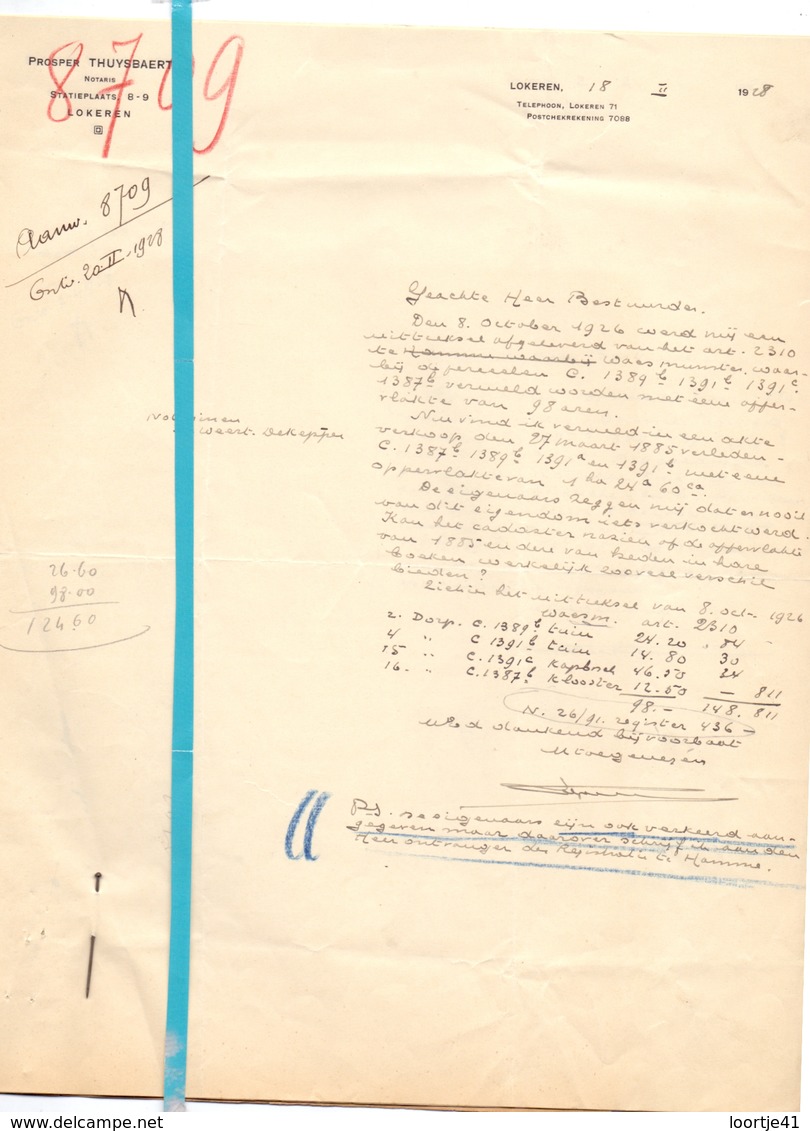 8709
PROSPER THUYSBAERT
NOTARIS
STATIEPLAATS, 8-9
LOKEREN
LOKEREN, 18 II 1928
TELEPHOON, LOKEREN 71
POSTCHEKREKENING 7088
Aanw. 8709
Ontv. 20-II-1928
Geachte Heer Bestuurder.
Den 8. October 1926 werd mij een
uittreksel afgeleverd van het art. 2310
te Hamme waarbij Waesmunster, waar-
bij de perceelen C. 1389b 1391b 1391c
1387b vermeld worden met eene opper-
vlakte van 98 aren.
Nu vind ik vermeld in een akte
verkoop den 27 Maart 1885 verleden-
C. 1387b 1389b 1391a en 1391b met eene
oppervlakte van 1 ha 24a 60ca
De eigenaars zeggen mij dat er nooit
van dit eigendom iets verkocht werd.
Kan het cadaster nazien of de oppervlakte
van 1885 en dere van heden in hare
boeken werkelijk zooveel verschil
bieden?
Ziehier het uittreksel van 8. oct. 1926
Waesm. art. 2310
2. Dorp. C. 1389b tuin 24.20 84
4 " C 1391b tuin 14.80 30
15 " C. 1391c Kapbosch 46.50 24
16. " C. 1387b Klooster 12.50 - 811
98.- 148. 811
N. 26/91. register 436 -
U Ed dankend bij voorbaat
Utoegenegen
Weert. Dekepper
26.60
98.00
124.60
P.S. de eigenaars zijn ook verkeerd aan-
gegeven maar daarover schrijf ik aan den
Heer ontvanger der Registratie te Hamme.
loortje41
www.delcampe.net